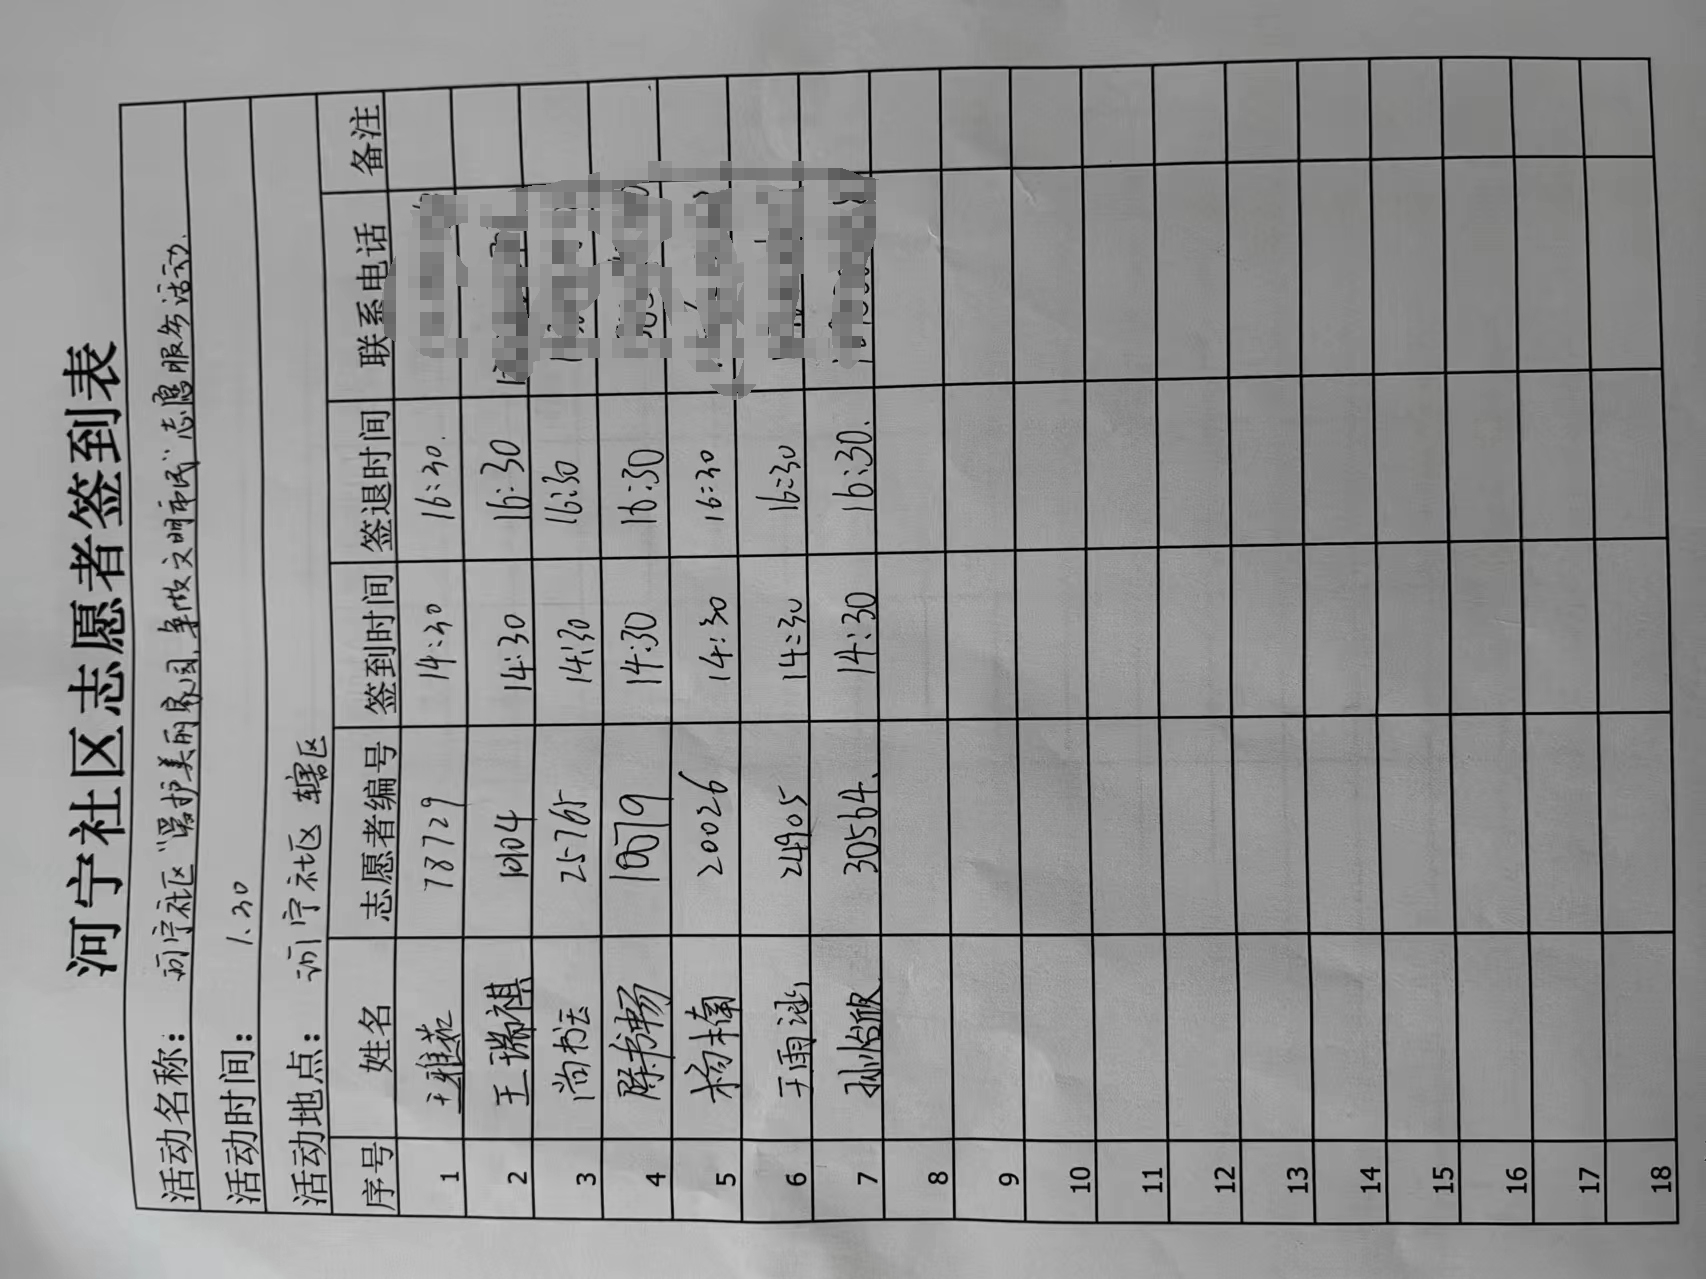 河宁社区志愿者签到表
活动名称：河宁社区“爱护美丽家园,争做文明市民”志愿服务活动.
活动时间：1.30
活动地点：河宁社区 辖区
序号 姓名 志愿者编号 签到时间 签退时间 联系电话 备注
1 王雅茹 78729 14:30 16:30.
2 王瑞祺 14:30 16:30
3 尚书云 25765 14:30 16:30
4 陈书畅 14:30 16:30
5 杨楠 20026 14:30 16:30
6 王雨涵 24905 14:30 16:30
7 孙怡欣 30564. 14:30 16:30.
8
9
10
11
12
13
14
15
16
17
18